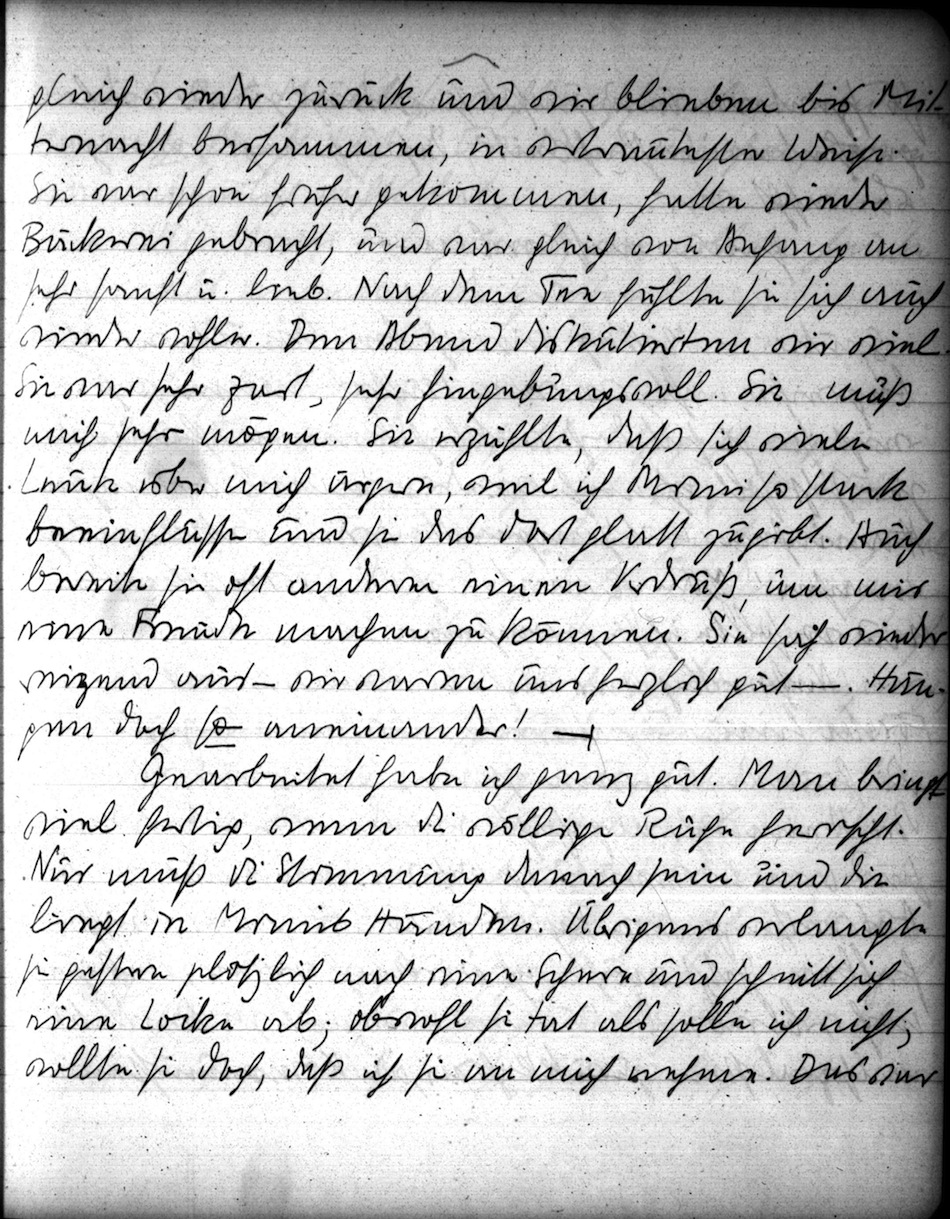 gleich wieder zurück und wir blieben bis Mit-
ternacht beisammen, in vertrautester Weise.
Sie war schon früher gekommen, hatte wieder
Bäckerei gebracht, und war gleich von Anfang an
sehr sanft u. lieb. Nach dem Tee fühlte sie sich auch
wieder wohler. Den Abend diskutierten wir viel.
Sie war sehr zart, sehr hingebungsvoll. Sie muß
mich sehr mögen. Sie erzählte, daß sich viele
Leute über mich ärgern, weil ich Moni so stark
beeinflusse und sie das dort glatt zugibt. Auch
bereite sie oft anderen einen Verdruß, um mir
eine Freude machen zu können. Sie sah wieder
reizend aus – wir waren uns herzlich gut —. Hän-
gen doch so aneinander! —
Gearbeitet habe ich ganz gut. Man bringt
viel fertig, wenn die völlige Ruhe herrscht.
Nur muß die Stimmung danach sein und die
liegt in Monis Händen. Übrigens verlangte
sie gestern plötzlich nach einer Schere und schnitt sich
eine Locke ab; obwohl sie tat als solle ich nicht,
wollte sie doch, daß ich sie an mich nehme. Das war